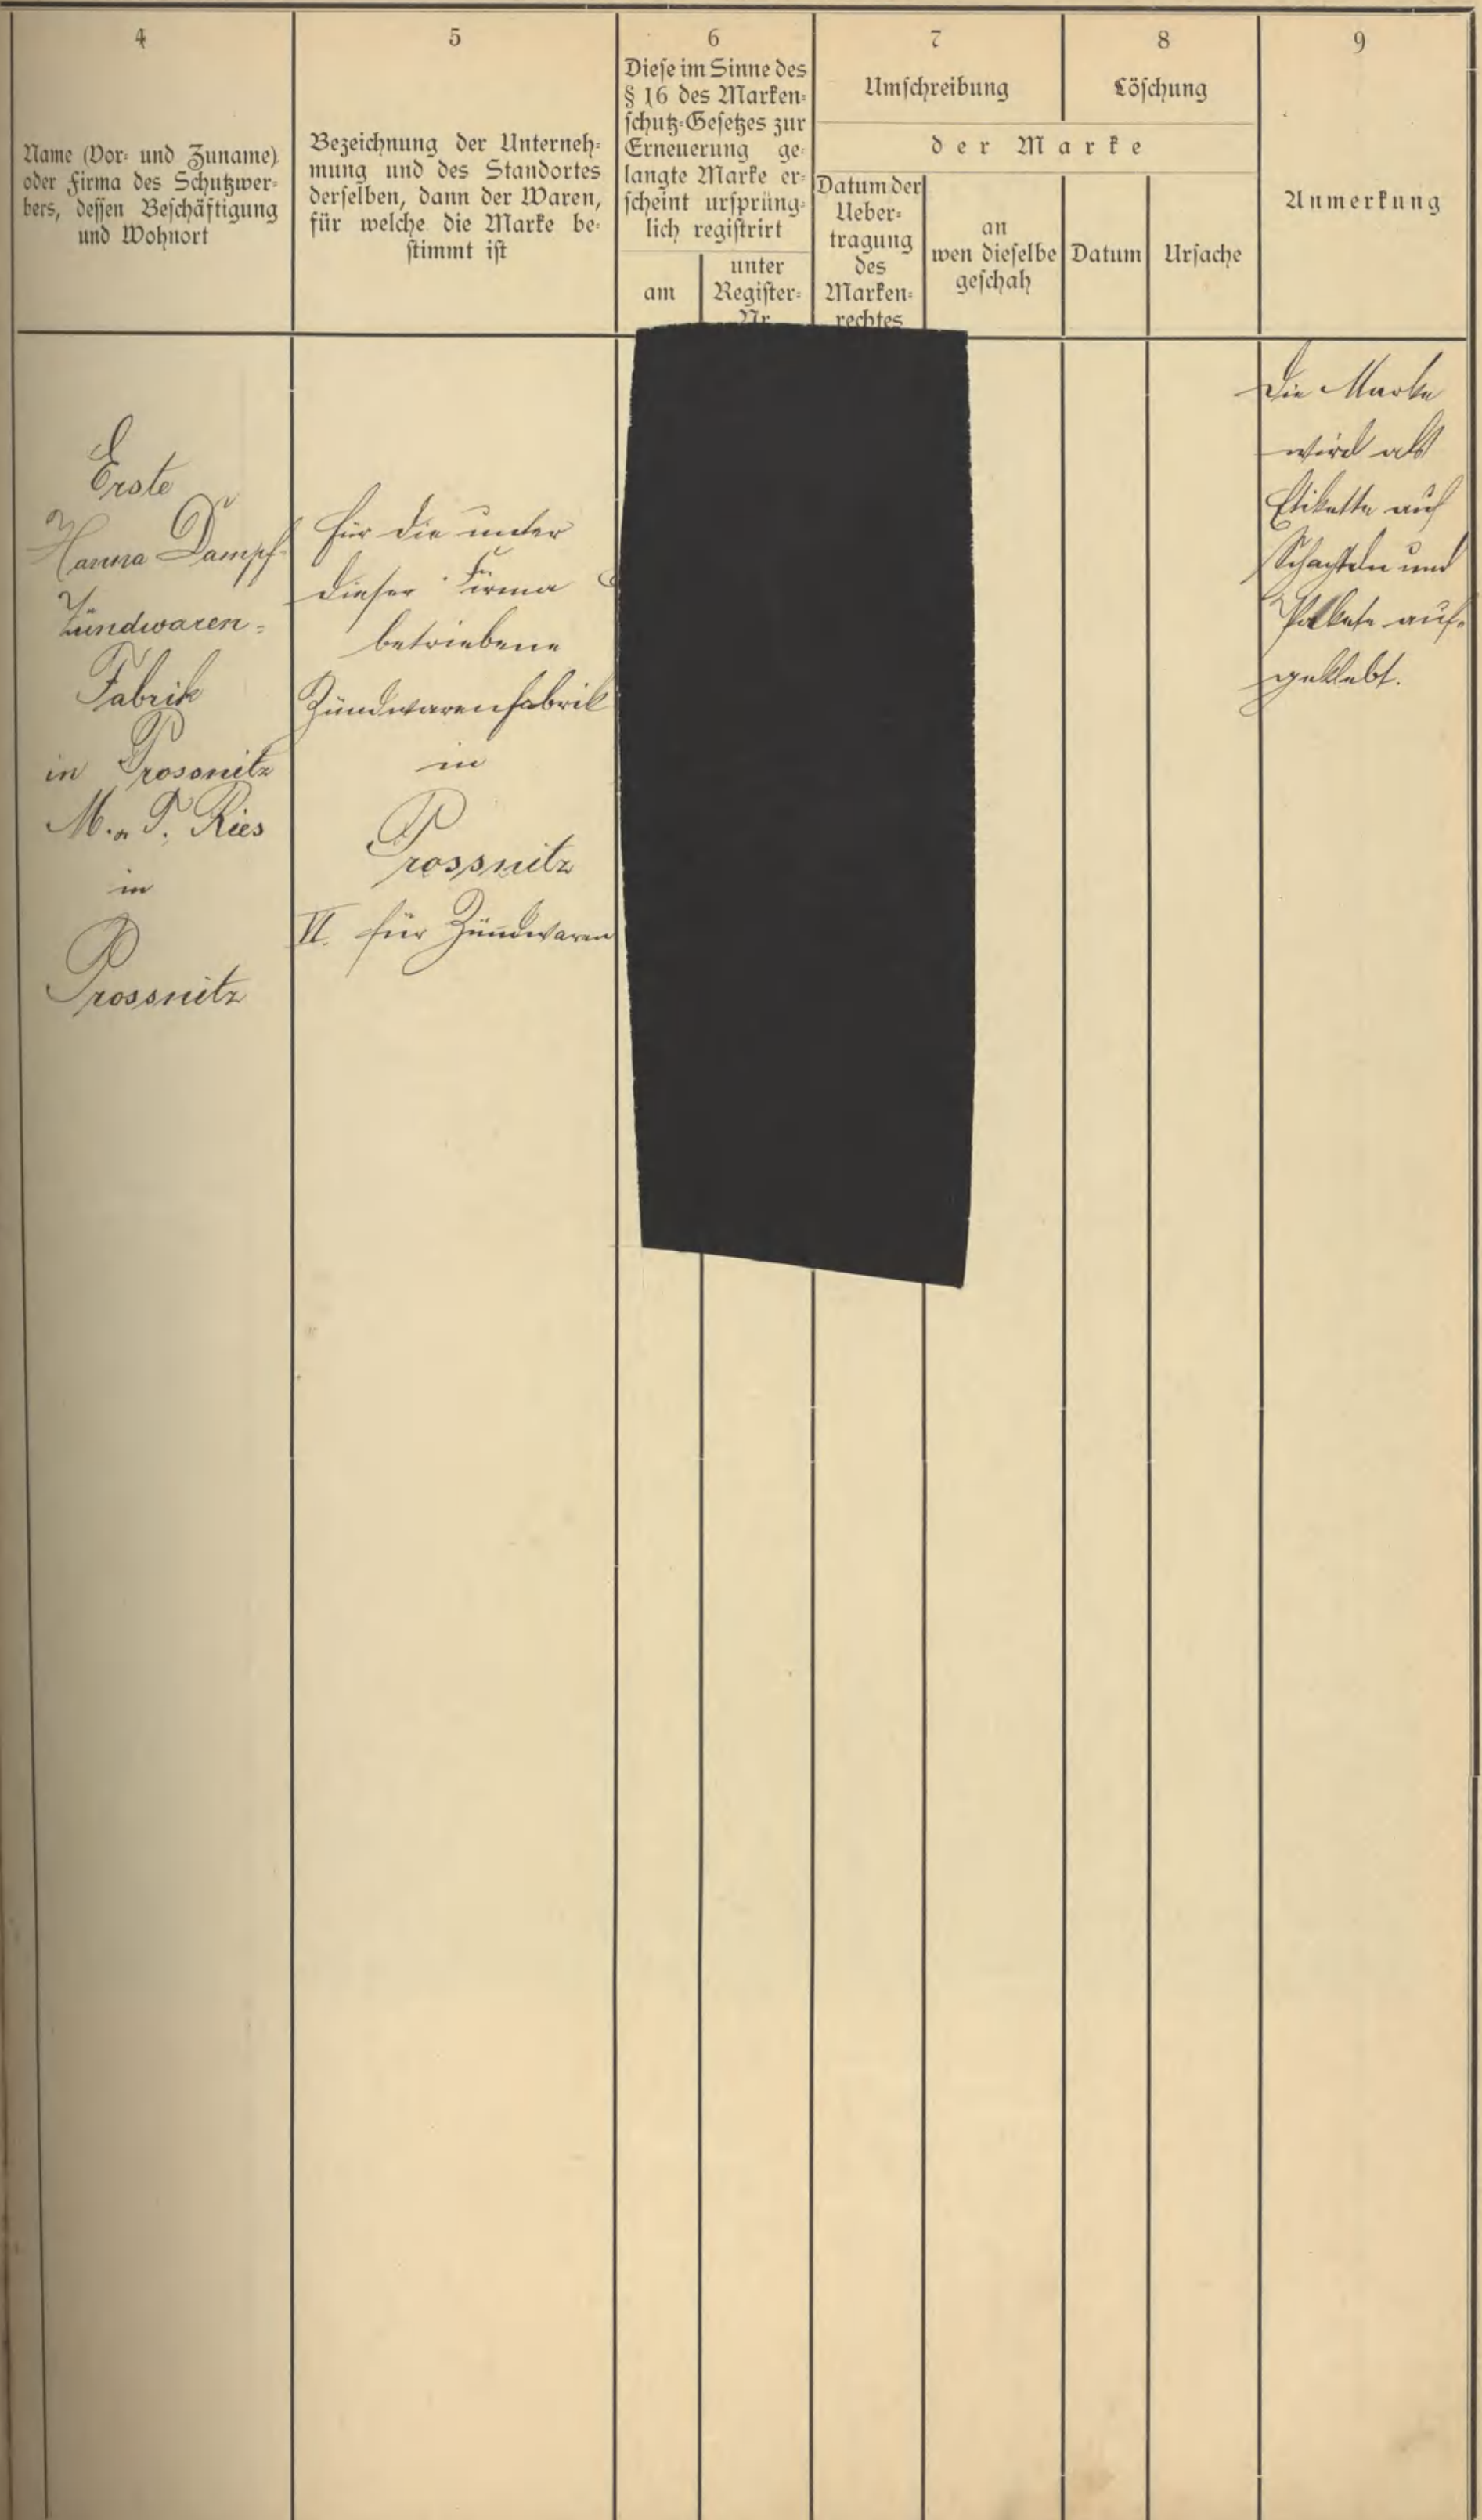 4
Name (Vor- und Zuname)
oder Firma des Schutzwer-
bers, dessen Beschäftigung
und Wohnort
5
Bezeichnung der Unterneh-
mung und des Standortes
derselben, dann der Waren,
für welche die Marke be-
stimmt ist
6
Diese im Sinne des
§ 16 des Marken-
schutz-Gesetzes zur
Erneuerung ge-
langte Marke er-
scheint ursprüng-
lich registrirt
am
unter
Register-
Nr.
7
Umschreibung
8
Löschung
der Marke
Datum der
Ueber-
tragung
des
Marken-
rechtes
an
wen dieselbe
geschah
Datum
Ursache
9
Anmerkung
Erste
Hanna Dampf-
Zündwaren-
Fabrik
in Prossnitz
M. & T. Ries
in
Prossnitz
für die unter
dieser Firma
betriebene
Zündwarenfabrik
in
Prossnitz
VI. für Zündwaren
Die Marke
wird als
Etikette auf
Schachteln und
Pakete auf-
geklebt.